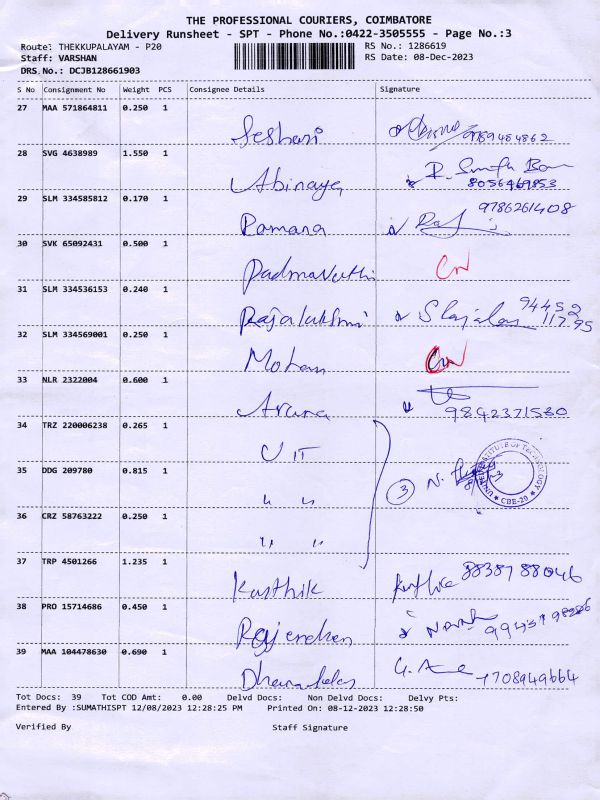 THE PROFESSIONAL COURIERS, COIMBATORE
Delivery Runsheet - SPT - Phone No.:0422-3505555 - Page No.:3
Route: THEKKUPALAYAM - P20 RS No.: 1286619
Staff: VARSHAN RS Date: 08-Dec-2023
DRS No.: DCJB128661903
S No Consignment No Weight PCS Consignee Details Signature
27 MAA 571864811 0.250 1
Seshasi 9789484862
28 SVG 4638989 1.550 1
Abinaya 8056469853
29 SLM 334585812 0.170 1
Ramana 9786261408
30 SVK 65092431 0.500 1
Padmavathi
31 SLM 334536153 0.240 1
Rajalakshmi 94452
11795
32 SLM 334569001 0.250 1
Mohan
33 NLR 2322004 0.600 1
Aruna 9842371530
34 TRZ 220006238 0.265 1
UIT
35 DDG 209780 0.815 1
" " 3 N. INSTITUTE OF TECHNOLOGY CBE-20
36 CRZ 58763222 0.250 1
" "
37 TRP 4501266 1.235 1
Karthik Karthik 8838788046
38 PRO 15714686 0.450 1
Rajendran
39 MAA 104478630 0.690 1
7708949664
Tot Docs: 39 Tot COD Amt: 0.00 Delvd Docs: Non Delvd Docs: Delvy Pts:
Entered By :SUMATHISPT 12/08/2023 12:28:25 PM Printed On: 08-12-2023 12:28:50
Verified By Staff Signature